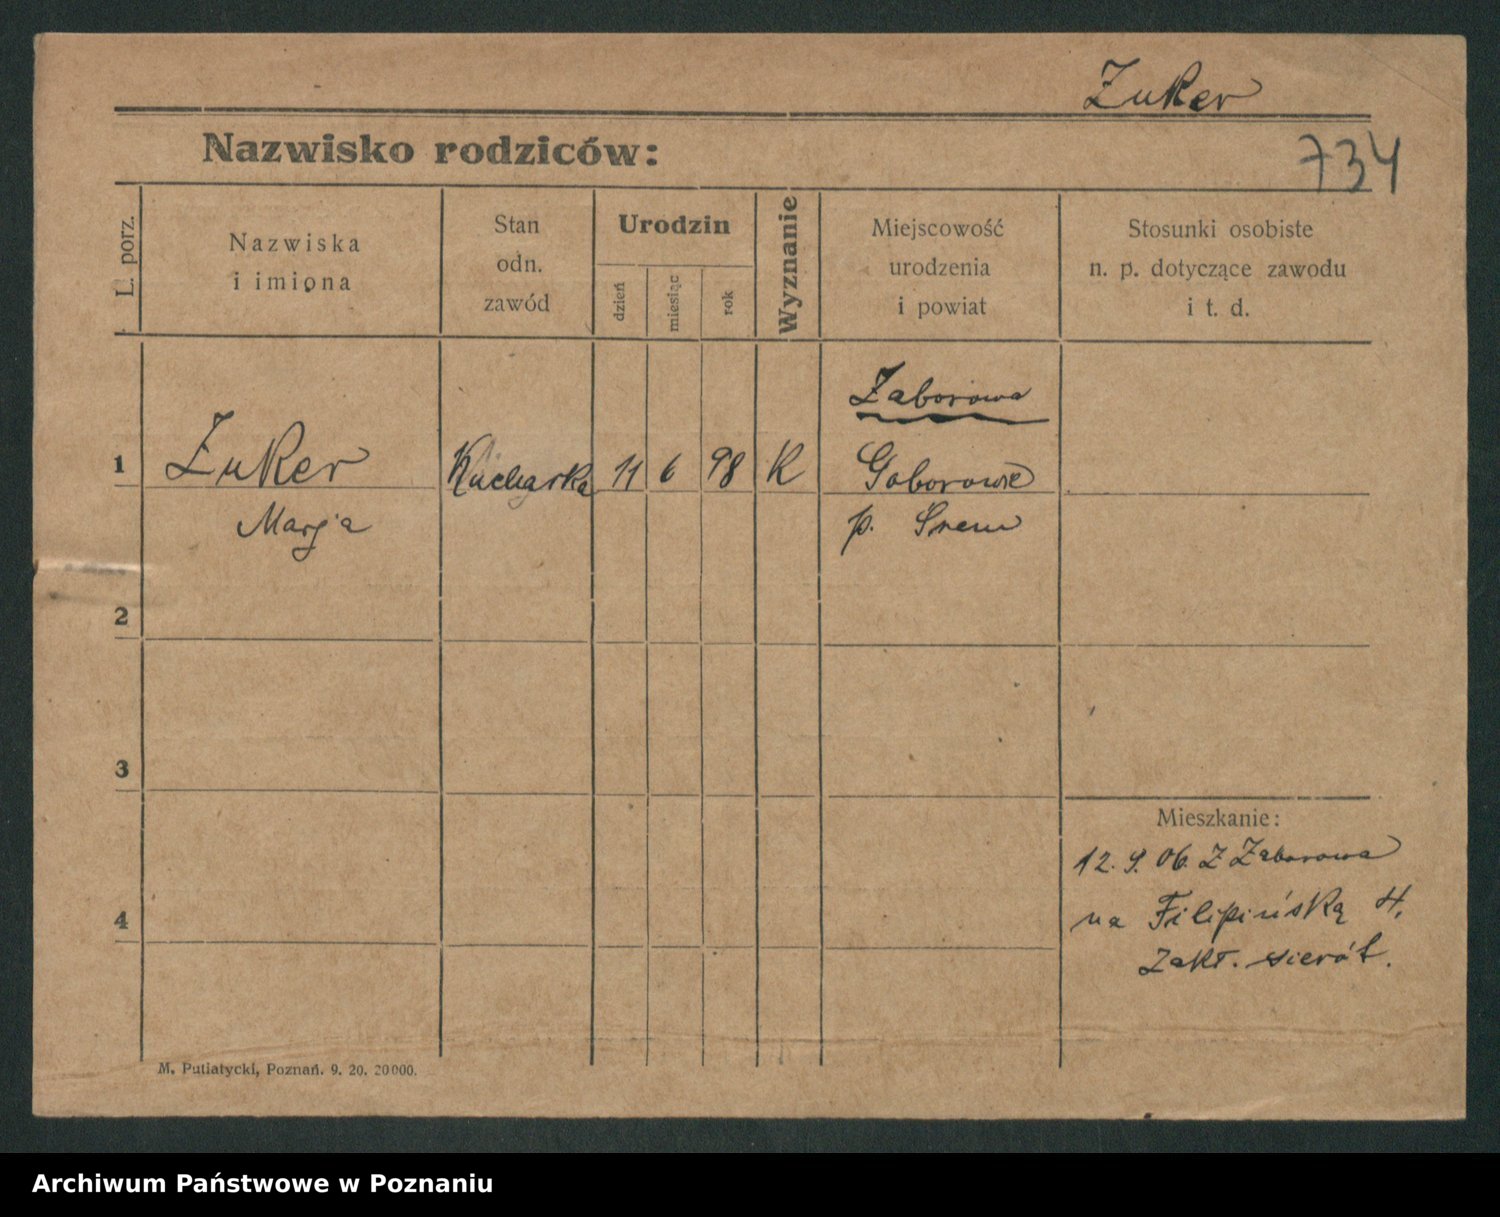 Zuker
Nazwisko rodziców:
734
L. porz.
Nazwiska
i imiona
Stan
odn.
zawód
Urodzin
dzień
miesiąc
rok
Wyznanie
Miejscowość
urodzenia
i powiat
Stosunki osobiste
n. p. dotyczące zawodu
i t. d.
Zaborowa
1
Zuker
Kucharka
11
6
98
K
Goborowie
Marja
p. Srem
2
3
Mieszkanie:
12. 9. 06. Z Zaborowa
4
na Filipińską 4.
Zakł. sierót.
M. Putiatycki, Poznań. 9. 20. 20000.
Archiwum Państwowe w Poznaniu